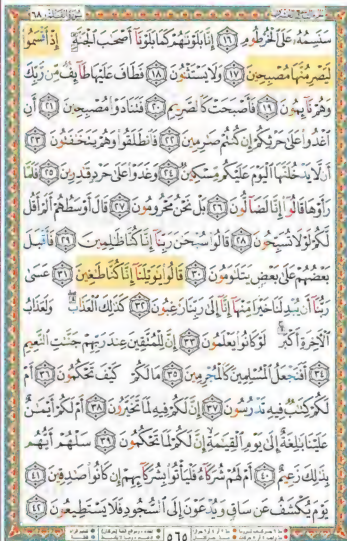 سَنَسِمُهُۥ عَلَى ٱلْخُرْطُومِ ١٦ إِنَّا بَلَوْنَٰهُمْ كَمَا بَلَوْنَآ أَصْحَٰبَ ٱلْجَنَّةِ إِذْ أَقْسَمُوا۟
لَيَصْرِمُنَّهَا مُصْبِحِينَ ١٧ وَلَا يَسْتَثْنُونَ ١٨ فَطَافَ عَلَيْهَا طَآئِفٌ مِّن رَّبِّكَ
وَهُمْ نَآئِمُونَ ١٩ فَأَصْبَحَتْ كَٱلصَّرِيمِ ٢٠ فَتَنَادَوْا۟ مُصْبِحِينَ ٢١ أَنِ
ٱغْدُوا۟ عَلَىٰ حَرْثِكُمْ إِن كُنتُمْ صَٰرِمِينَ ٢٢ فَٱنطَلَقُوا۟ وَهُمْ يَتَخَٰفَتُونَ ٢٣
أَن لَّا يَدْخُلَنَّهَا ٱلْيَوْمَ عَلَيْكُم مِّسْكِينٌ ٢٤ وَغَدَوْا۟ عَلَىٰ حَرْدٍ قَٰدِرِينَ ٢٥ فَلَمَّا
رَأَوْهَا قَالُوٓا۟ إِنَّا لَضَآلُّونَ ٢٦ بَلْ نَحْنُ مَحْرُومُونَ ٢٧ قَالَ أَوْسَطُهُمْ أَلَمْ أَقُل
لَّكُمْ لَوْلَا تُسَبِّحُونَ ٢٨ قَالُوا۟ سُبْحَٰنَ رَبِّنَآ إِنَّا كُنَّا ظَٰلِمِينَ ٢٩ فَأَقْبَلَ
بَعْضُهُمْ عَلَىٰ بَعْضٍ يَتَلَٰوَمُونَ ٣٠ قَالُوا۟ يَٰوَيْلَنَآ إِنَّا كُنَّا طَٰغِينَ ٣١ عَسَىٰ
رَبُّنَآ أَن يُبْدِلَنَا خَيْرًا مِّنْهَآ إِنَّآ إِلَىٰ رَبِّنَا رَٰغِبُونَ ٣٢ كَذَٰلِكَ ٱلْعَذَابُ وَلَعَذَابُ
ٱلْءَاخِرَةِ أَكْبَرُ لَوْ كَانُوا۟ يَعْلَمُونَ ٣٣ إِنَّ لِلْمُتَّقِينَ عِندَ رَبِّهِمْ جَنَّٰتِ ٱلنَّعِيمِ
٣٤ أَفَنَجْعَلُ ٱلْمُسْلِمِينَ كَٱلْمُجْرِمِينَ ٣٥ مَا لَكُمْ كَيْفَ تَحْكُمُونَ ٣٦ أَمْ
لَكُمْ كِتَٰبٌ فِيهِ تَدْرُسُونَ ٣٧ إِنَّ لَكُمْ فِيهِ لَمَا تَخَيَّرُونَ ٣٨ أَمْ لَكُمْ أَيْمَٰنٌ
عَلَيْنَا بَٰلِغَةٌ إِلَىٰ يَوْمِ ٱلْقِيَٰمَةِ إِنَّ لَكُمْ لَمَا تَحْكُمُونَ ٣٩ سَلْهُمْ أَيُّهُم
بِذَٰلِكَ زَعِيمٌ ٤٠ أَمْ لَهُمْ شُرَكَآءُ فَلْيَأْتُوا۟ بِشُرَكَآئِهِمْ إِن كَانُوا۟ صَٰدِقِينَ ٤١
يَوْمَ يُكْشَفُ عَن سَاقٍ وَيُدْعَوْنَ إِلَى ٱلسُّجُودِ فَلَا يَسْتَطِيعُونَ ٤٢
٥٦٥